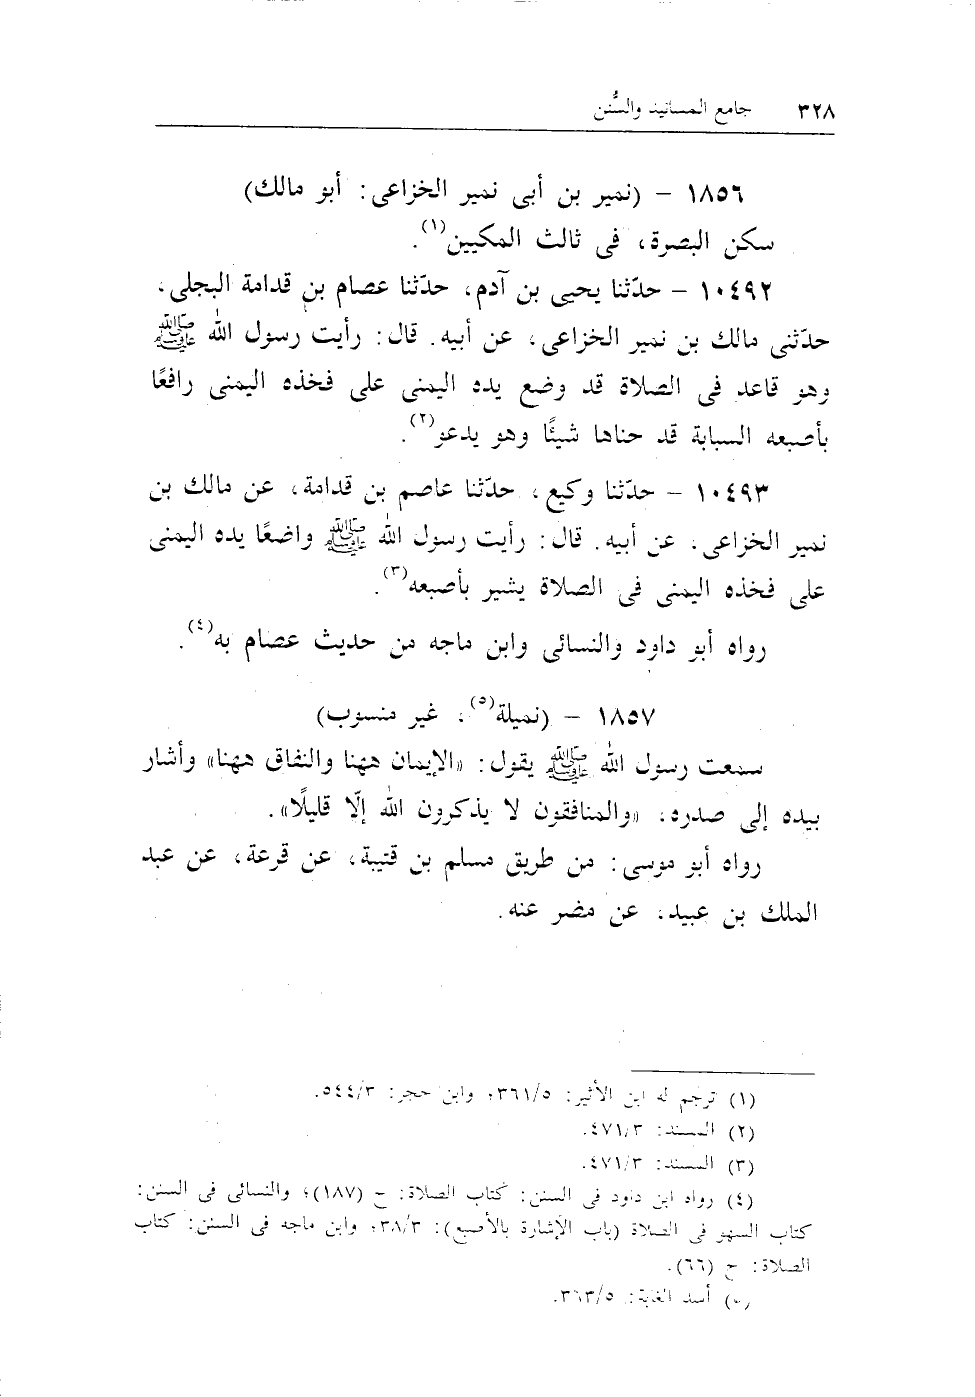 ٣٢٨ جامع المسانيد والسُّنن
١٨٥٦ - (نمير بن أبى نمير الخزاعى: أبو مالك)
سكن البصرة، فى ثالث المكيين(١).
١٠٤٩٢ - حدّثنا يحيى بن آدم، حدّثنا عصام بن قدامة البجلى،
حدّثنى مالك بن نمير الخزاعى، عن أبيه. قال: رأيت رسول الله ﷺ
وهو قاعد فى الصلاة قد وضع يده اليمنى على فخذه اليمنى رافعًا
بأصبعه السبابة قد حناها شيئًا وهو يدعو(٢).
١٠٤٩٣ - حدّثنا وكيع، حدّثنا عاصم بن قدامة، عن مالك بن
نمير الخزاعى. عن أبيه. قال: رأيت رسول الله ﷺ واضعًا يده اليمنى
على فخذه اليمنى فى الصلاة يشير بأصبعه(٣).
رواه أبو داود والنسائى وابن ماجه من حديث عصام به(٤).
١٨٥٧ - (نميلة(٥)، غير منسوب)
سمعت رسول الله ﷺ يقول: «الإيمان ههنا والنفاق ههنا» وأشار
بيده إلى صدره، «والمنافقون لا يذكرون الله إلّا قليلًا».
رواه أبو موسى: من طريق مسلم بن قتيبة، عن قرعة، عن عبد
الملك بن عبيد، عن مضر عنه.
(١) ترجم له ابن الأثير: ٣٦١/٥، وابن حجر: ٥٤٤/٣.
(٢) المسند: ٤٧١/٣.
(٣) المسند: ٤٧١/٣.
(٤) رواه ابن داود فى السنن: كتاب الصلاة: ح (١٨٧)؛ والنسائى فى السنن:
كتاب السهو فى الصلاة (باب الإشارة بالأصبع): ٣٨/٣، وابن ماجه فى السنن: كتاب
الصلاة: ح (٦٦).
(٥) أسد الغابة: ٣٦٣/٥.